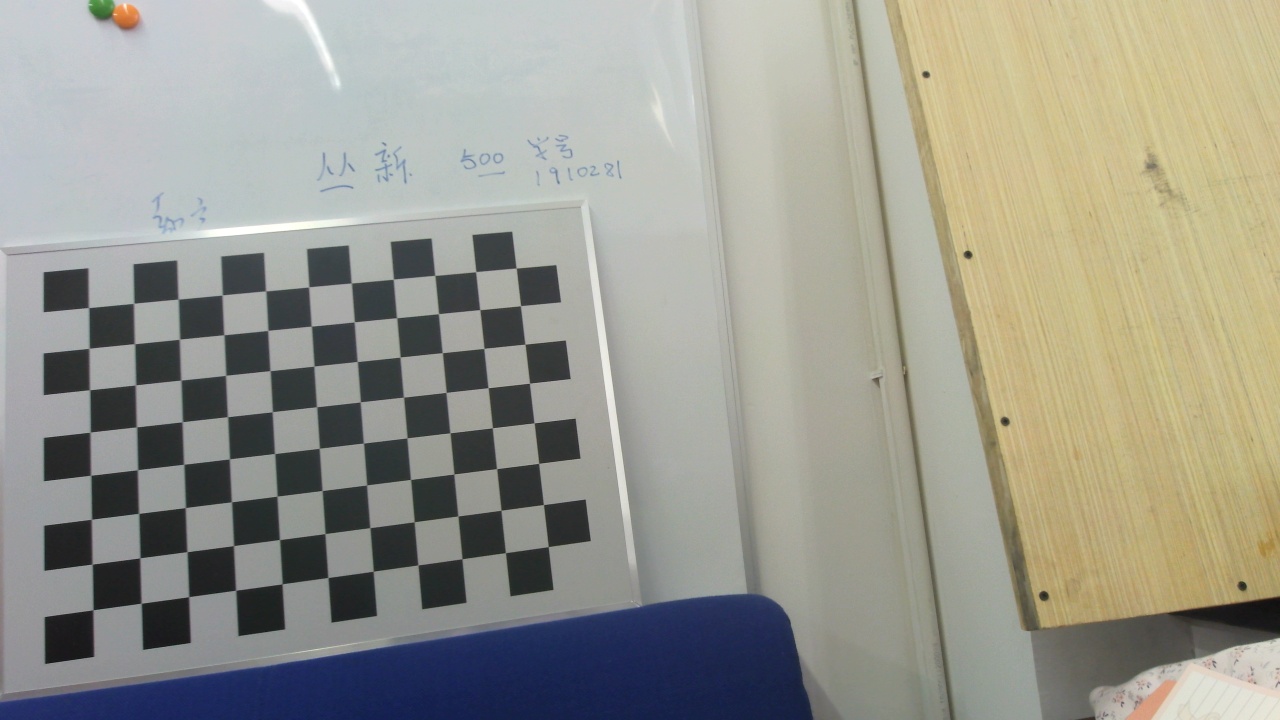 丛新 500 学号
1910281